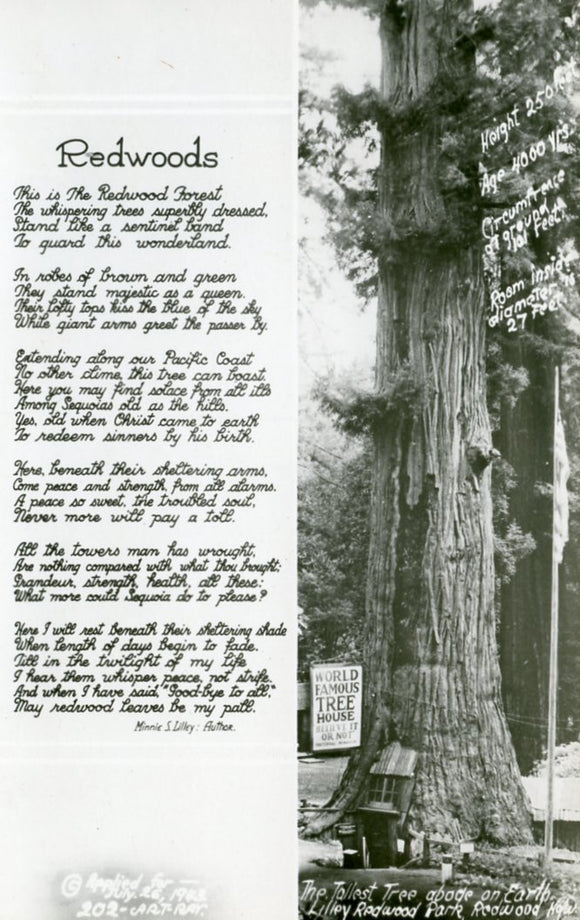 Redwoods
This is The Redwood Forest
The whispering trees superbly dressed,
Stand like a sentinel band
To guard this wonderland.
In robes of brown and green
They stand majestic as a queen.
Their lofty tops kiss the blue of the sky
While giant arms greet the passer by.
Extending along our Pacific Coast
No other clime, this tree can boast.
Here you may find solace from all ills
Among Sequoias old as the hills.
Yes, old when Christ came to earth
To redeem sinners by his birth.
Here, beneath their sheltering arms,
Come peace and strength, from all alarms.
A peace so sweet, the troubled soul,
Never more will pay a toll.
All the towers man has wrought,
Are nothing compared with what thou brought;
Grandeur, strength, health, all these:
What more could Sequoia do to please?
Here I will rest beneath their sheltering shade
When length of days begin to fade.
Till in the twilight of my life
I hear them whisper peace, not strife.
And when I have said "Good-bye to all,"
May redwood leaves be my pall.
Minnie S. Lilley: Author.
© Applied for
July 26, 
202-ART-RAY.
Height 250 feet
Age 4000 Yrs.
Circumference
at ground
101 Feet.
Room inside
diameter is
27 Feet
WORLD
FAMOUS
TREE
HOUSE
BELIEVE IT
OR NOT
The Tallest Tree abode on Earth
Lilley Redwood Park, Redwood Hwy